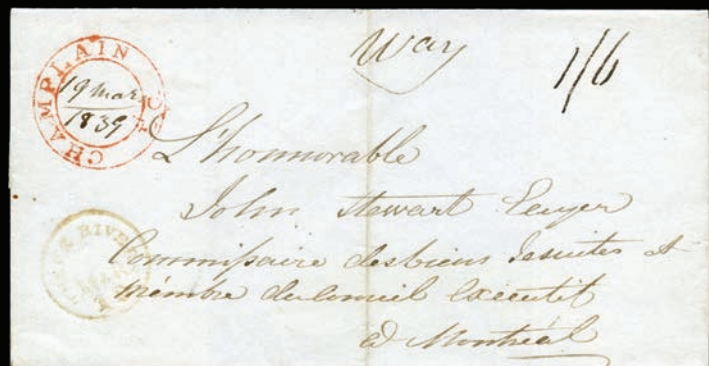 Way
1/6
CHAMPLAIN
19 Mar
1839
L'honnorable
John Stewart Ecuyer
Commissaire des biens Jesuites et
membre du Conseil Executif
à Montréal